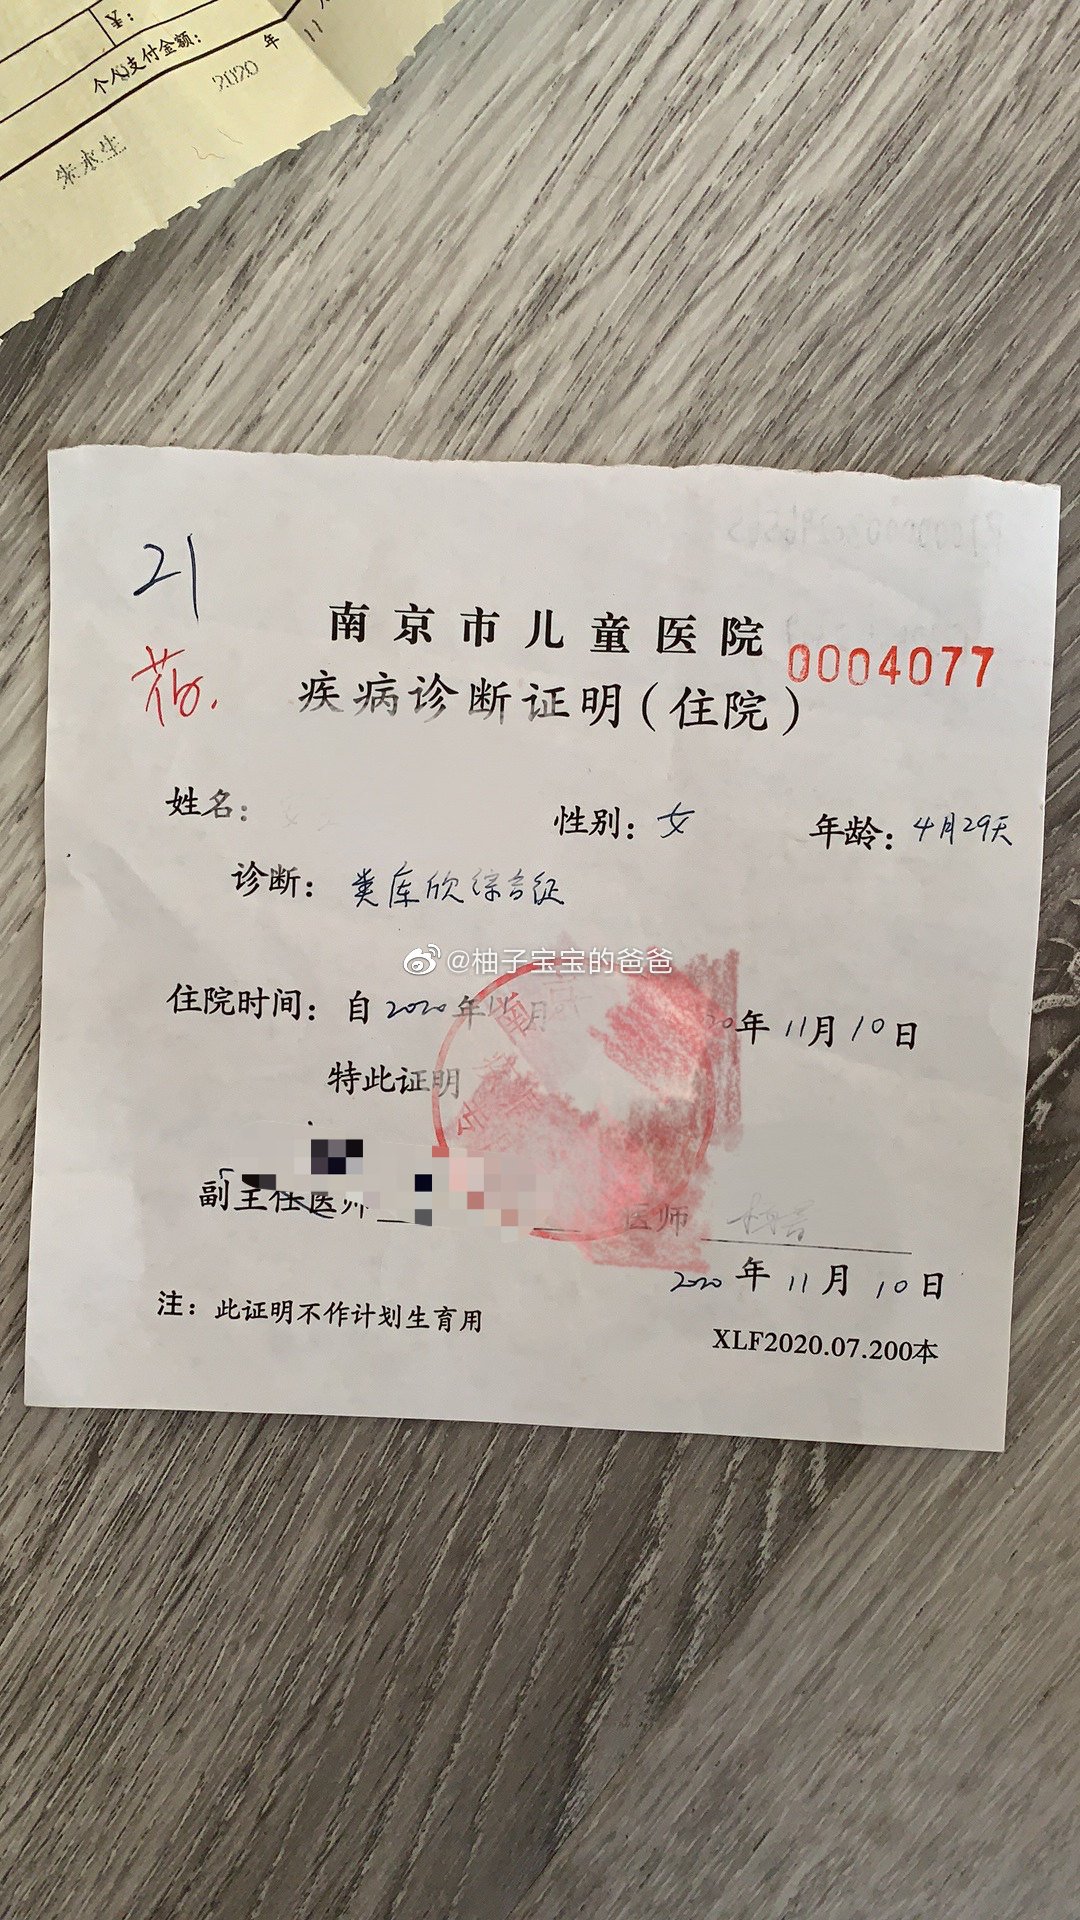 ¥:
个人支付金额:
2020 年 11
朱求生
21
南京市儿童医院
0004077
疾病诊断证明(住院)
姓名:
性别: 女
年龄: 4月29天
诊断: 类库欣综合征
@柚子宝宝的爸爸
住院时间: 自 2020年11月
20年 11月 10日
特此证明
副主任医师
医师
2020 年 11 月 10日
注: 此证明不作计划生育用
XLF2020.07.200本